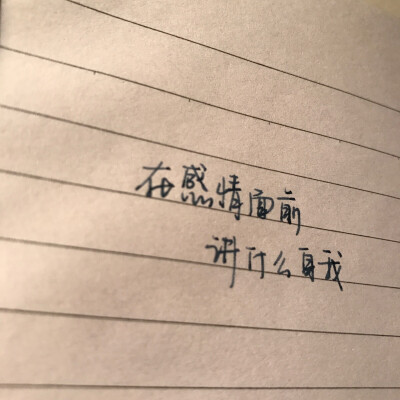 在感情面前
讲什么自我